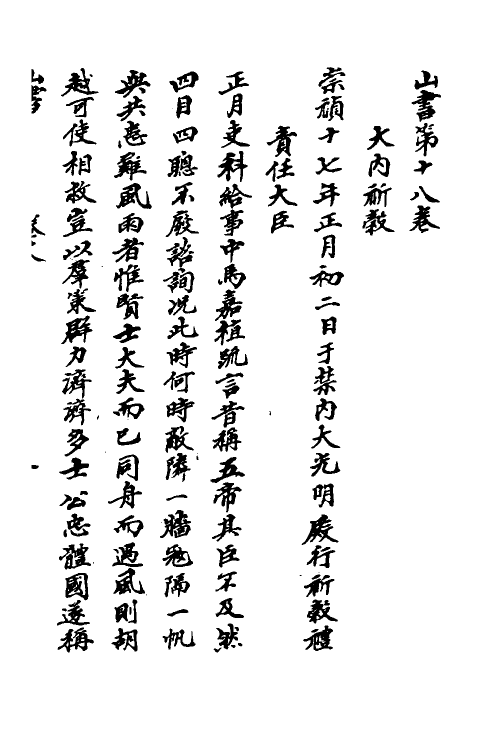 山書第十八卷
大內祈穀
崇禎十七年正月初二日于禁內大光明殿行祈穀禮
責任大臣
正月吏科給事中馬嘉植疏言昔稱五帝其臣不及然
四目四聰不廢諮詢况此時何時敵隣一牆寇隔一帆
與共患難風雨者惟賢士大夫而已同舟而遇風則胡
越可使相救豈以羣策群力濟濟多士公忠體國遂稱
山書 卷十八 一